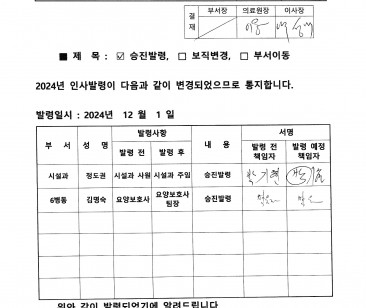 결재 부서장 의료원장 이사장
■ 제 목 : ☑ 승진발령, □ 보직변경, □ 부서이동
2024년 인사발령이 다음과 같이 변경되었으므로 통지합니다.
발령일시 : 2024년 12 월 1 일
부 서 성 명 발령사항 내 용 서명
발령 전 발령 후 발령 전 책임자 발령 예정 책임자
시설과 정도권 시설과 사원 시설과 주임 승진발령
6병동 김명숙 요양보호사 요양보호사 팀장 승진발령
위와 같이 발령되었기에 알려드립니다